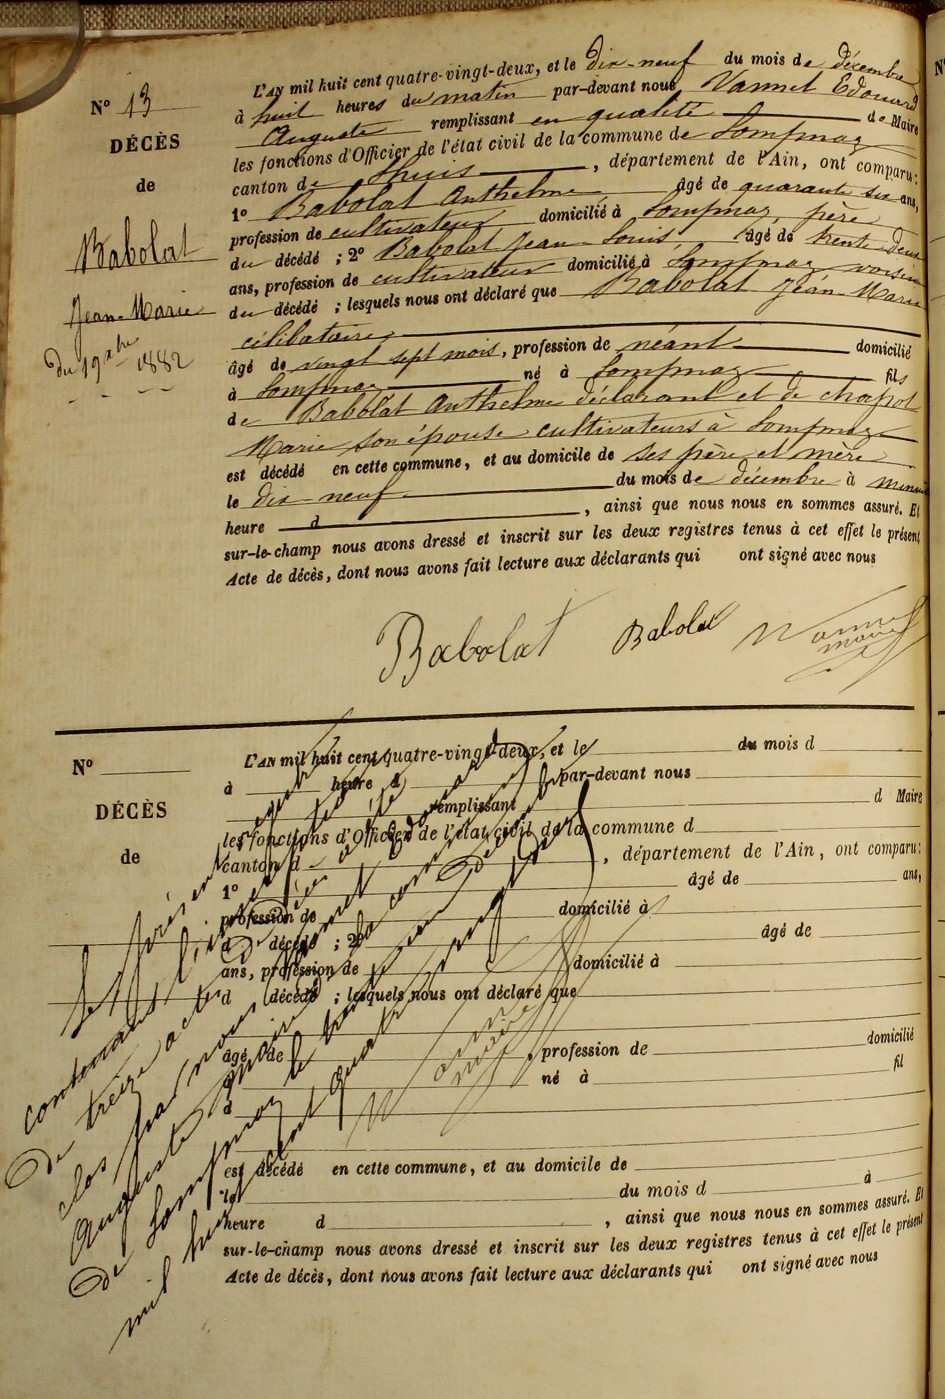 N° 13
DÉCÈS
de
Babolat
Jean-Marie
du 19 xbre
1882
L'AN mil huit cent quatre-vingt-deux, et le dix-neuf du mois de décembre
à huit heures du matin par-devant nous, Vannet Edouard
Auguste remplissant en qualité de Maire
les fonctions d'Officier de l'état civil de la commune de Lompnaz
canton de Lhuis, département de l'Ain, ont comparu :
1° Babolat Anthelme âgé de quarante six ans,
profession de cultivateur domicilié à Lompnaz, père
du décédé ; 2° Babolat Jean-Louis, âgé de trente-deux
ans, profession de cultivateur domicilié à Lompnaz voisin
du décédé ; lesquels nous ont déclaré que Babolat Jean-Marie
célibataire
âgé de vingt sept mois, profession de néant domicilié
à Lompnaz né à Lompnaz fils
de Babolat Anthelme déclarant et de chapot
Marie son épouse cultivateurs à Lompnaz
est décédé en cette commune, et au domicile de ses père et mère
le dix neuf du mois de décembre à minuit
heure d , ainsi que nous nous en sommes assuré. Et
sur-le-champ nous avons dressé et inscrit sur les deux registres tenus à cet effet le présent
Acte de décès, dont nous avons fait lecture aux déclarants qui ont signé avec nous
Babolat Babolat Vannet
maire
N°
DÉCÈS
de
L'AN mil huit cent quatre-vingt-deux, et le du mois d
à heure d par-devant nous
remplissant d Maire
les fonctions d'Officier de l'état civil de la commune d
canton d , département de l'Ain, ont comparu :
1° âgé de ans,
profession de domicilié à
d décédé ; 2° âgé de
ans, profession de domicilié à
d décédé ; lesquels nous ont déclaré que
âgé de , profession de domicilié
à né à fil
d
est décédé en cette commune, et au domicile de
le du mois d à
heure d , ainsi que nous nous en sommes assuré. Et
sur-le-champ nous avons dressé et inscrit sur les deux registres tenus à cet effet le présent
Acte de décès, dont nous avons fait lecture aux déclarants qui ont signé avec nous
Le présent registre
contenant
de treize actes de décès a été
clos par nous Vannet Edouard
Auguste maire de la commune
de Lompnaz le trente un Décembre
mil huit cent quatre vingt deux
Vannet
maire